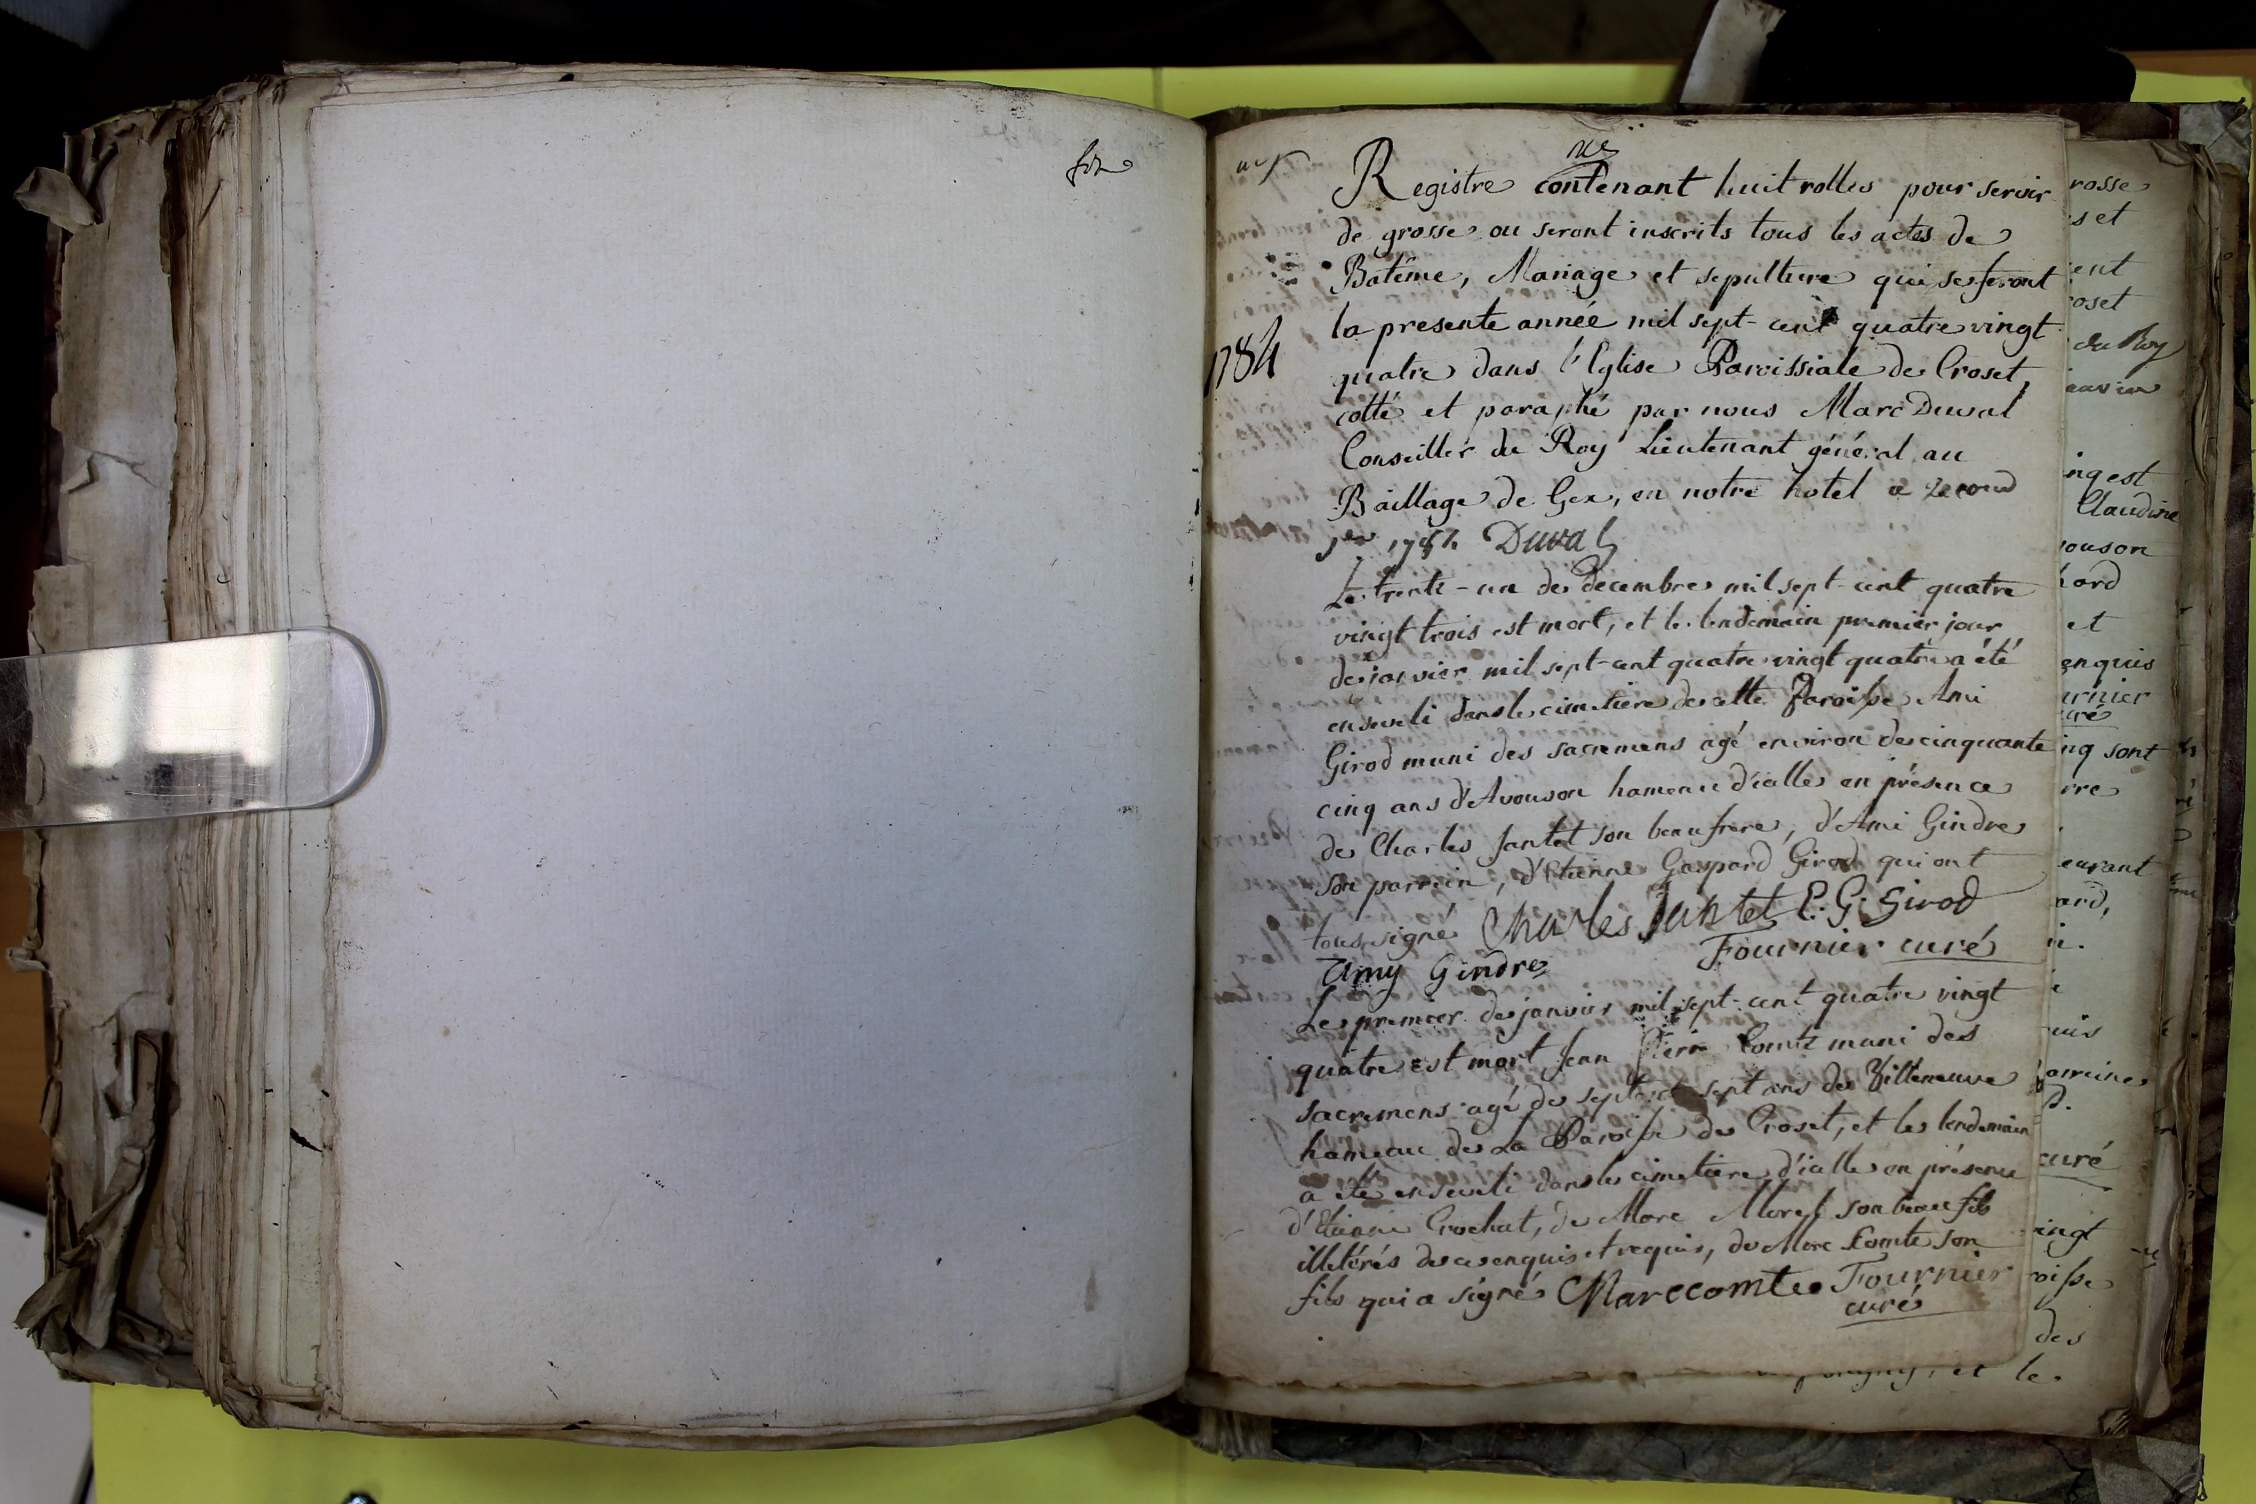 fin
1784
Registre contenant huit rolles pour servir
de grosse ou seront inscrits tous les actes de
Batême, Mariage et sepulture qui se feront
la presente année mil sept-cent quatre vingt
quatre dans l'Eglise Paroissiale de Croset,
cotté et paraphé par nous Marc Duval
Conseiller du Roy Lieutenant général au
Baillage de Gex, en notre hotel ce second
jer 1784 Duval
Le trente-un de decembre mil sept-cent quatre
vingt trois est mort, et le lendemain premier jour
de janvier mil sept-cent quatre vingt quatre a été
enseveli dans le cimetière de cette Paroisse Ami
Girod muni des sacremens agé environ de cinquante
cinq ans d'Avouson hameau d'icelle en présence
de Charles Jantet son beaufrere, d'Ami Gindre
son parrein, d'Etienne Gaspard Girod qui ont
tous signé Charles Jantet E. G. Girod
Amy Gindre Fournier curé
Le premier de janvier mil sept-cent quatre vingt
quatre est mort Jean Pierre Comte muni des
sacremens agé de septante sept ans de Villeneuve
hameau de La Paroisse de Croset, et le lendemain
a été enseveli dans le cimetière d'icelle en présence
d'Etienne Crochat, de Marc Morel son beau fils
illetérés de ce enquis et requis, de Marc Comte son
fils qui a signé Marc comte Fournier
curé
rosse
s et
ent
oset
du Roy
ing est
Claudine
ouson
et
enquis
urnier
curé
ing sont
rre
eurant
ard,
uis
curé
ingt
oisse
des
et le